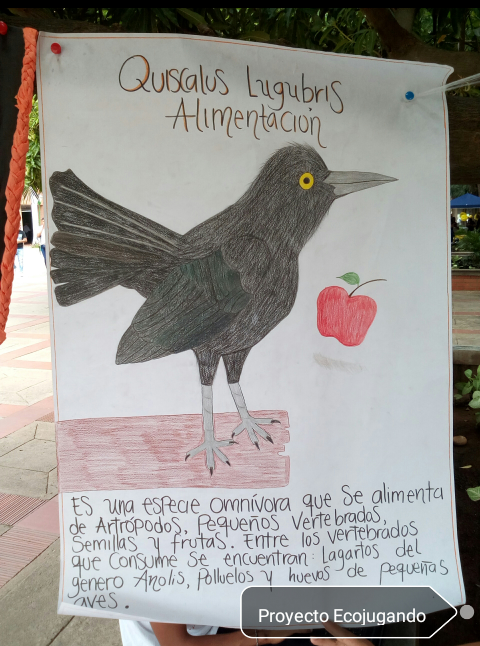 Quiscalus Lugubris
Alimentación
Es una especie omnívora que se alimenta
de Artrópodos, Pequeños Vertebrados,
Semillas y frutas. Entre los vertebrados
que consume se encuentran: lagartos del
género Anolis, Polluelos y huevos de pequeñas
aves.
Proyecto Ecojugando